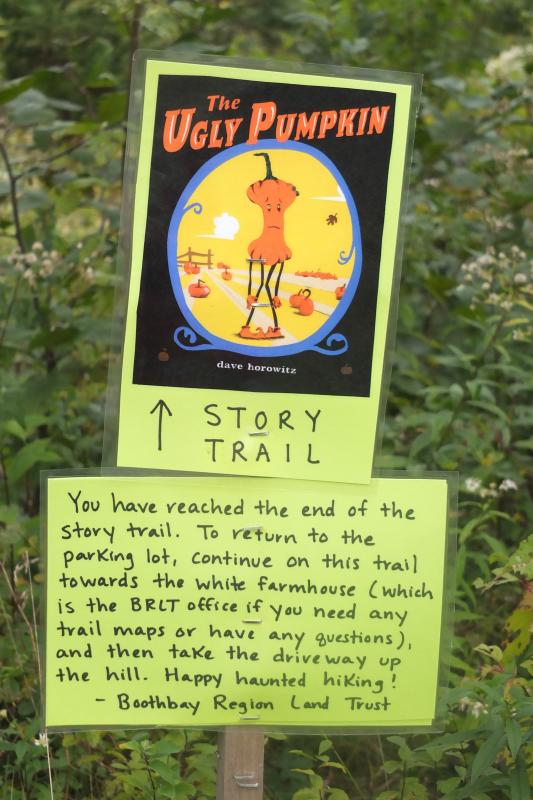 The
UGLY PUMPKIN
dave horowitz
↑ STORY
TRAIL
You have reached the end of the
story trail. To return to the
parking lot, continue on this trail
towards the white farmhouse (which
is the BRLT office if you need any
trail maps or have any questions),
and then take the driveway up
the hill. Happy haunted hiking!
- Boothbay Region Land Trust